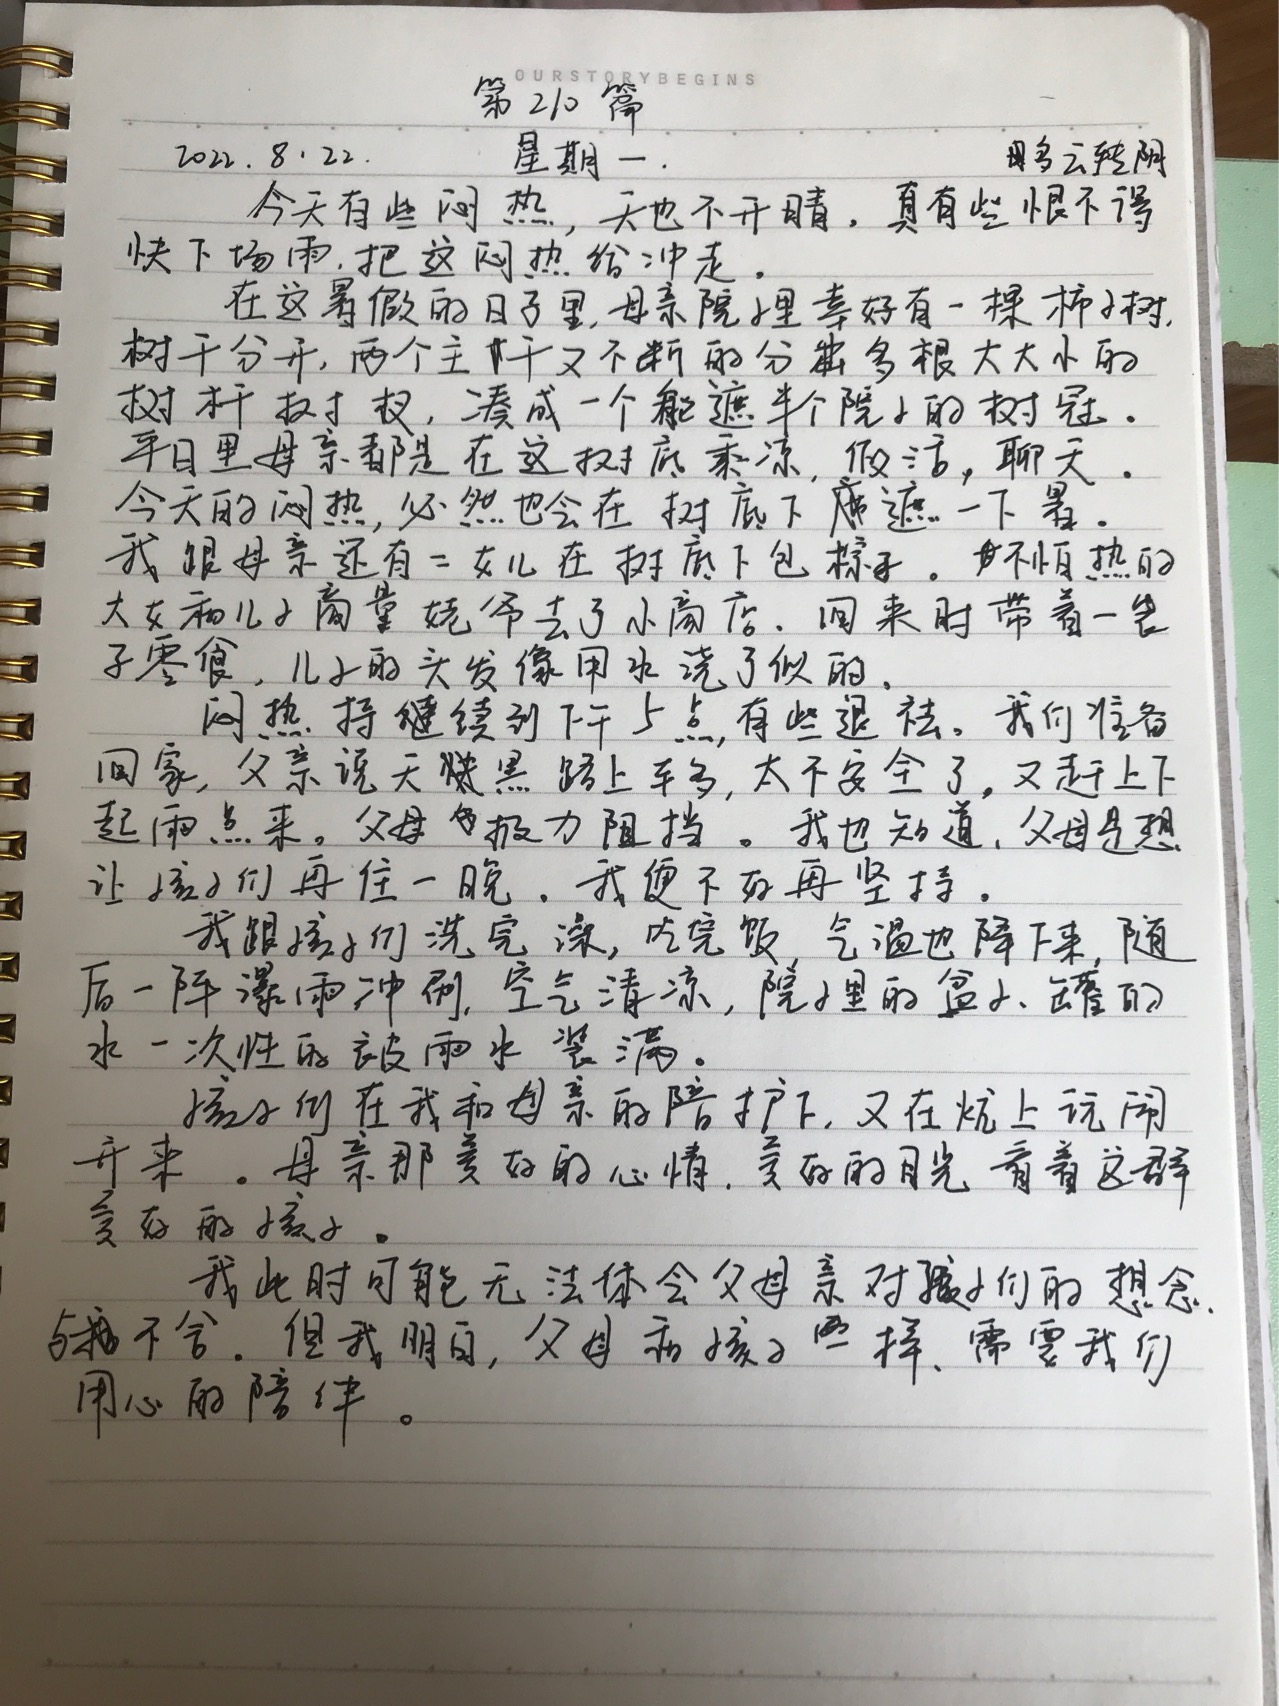 OURSTORYBEGINS
第210篇
2022.8.22. 星期一. 多云转阴
今天有些闷热,天也不开晴。真有些恨不得
快下场雨,把这闷热给冲走。
在这暑假的日子里,母亲院子里幸好有一棵柿子树,
树干分开,两个主干又不断的分出多根大大小的
树杆树杈,凑成一个能遮半个院子的树冠。
平日里母亲都是在这树底乘凉,做活,聊天。
今天的闷热,必然也会在树底下遮一下暑。
我跟母亲还有二女儿在树底下包粽子。不怕热的
大女和儿子商量姥爷去了小商店。回来时带着一袋
子零食,儿子的头发像用水浇了似的。
闷热持继续到下午5点,有些退祛。我们准备
回家,父亲说天黑路上车多,太不安全了。又赶上下
起雨点来。父母极力阻挡。我也知道,父母是想
让孩子们再住一晚。我便不好再坚持。
我跟孩子们洗完澡,吃完饭,气温也降下来,随
后一阵瀑雨冲刷,空气清凉,院子里的盆子、罐的
水一次性的被雨水装满。
孩子们在我和母亲的陪护下,又在炕上玩闹
开来。母亲那美好的心情,美好的目光看着这群
美好的孩子。
我此时可能无法体会父母亲对孩子们的想念
与不舍。但我明白,父母和孩子一样,需要我们
用心的陪伴。